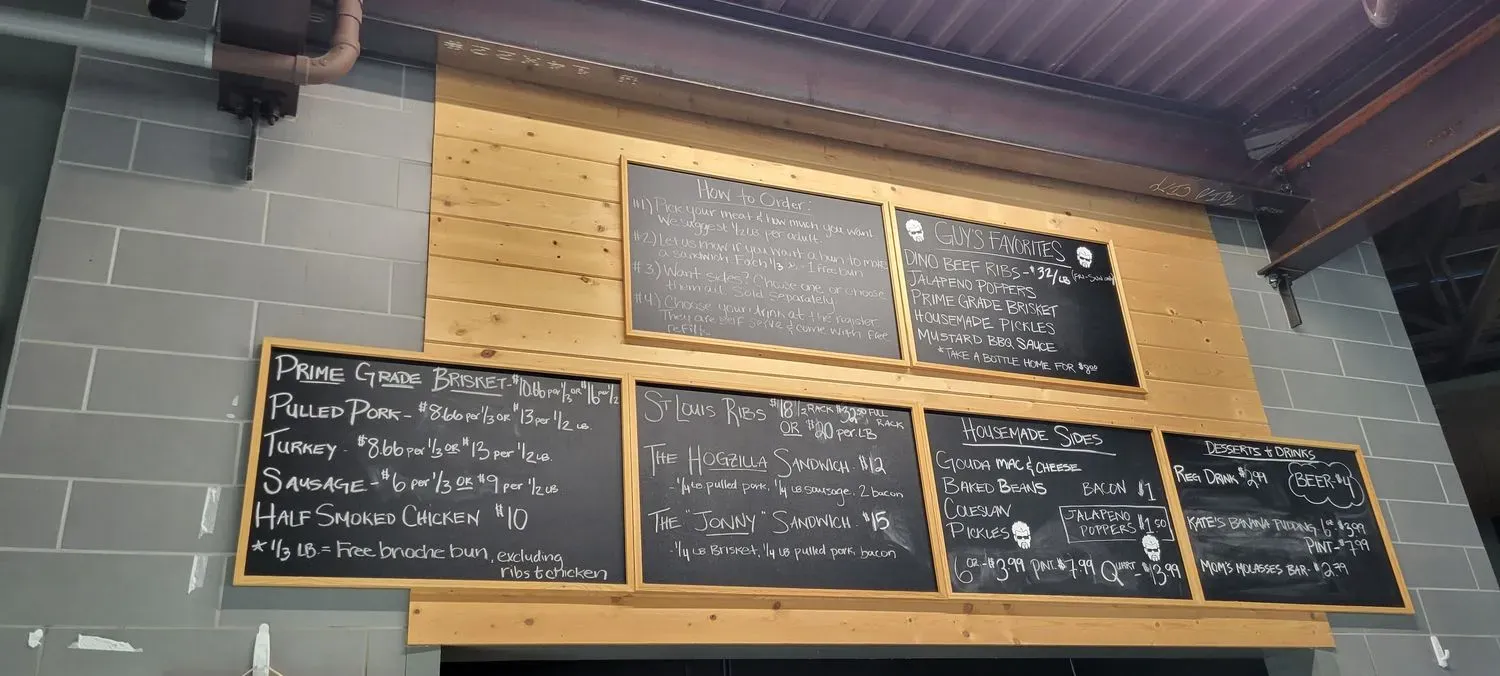 How to Order:
#1) Pick your meat & how much you want
We suggest 1/2 LB per adult.
#2) Let us know if you want a bun to make
a sandwich. Each 1/3 = 1 free bun
#3) Want sides? Choose one or choose
them all. Sold separately
#4) Choose your drink at the register
They are self serve & come with free
refills
GUY'S FAVORITES
DINO BEEF RIBS - $32/LB (FRI-SUN only)
JALAPENO POPPERS
PRIME GRADE BRISKET
HOUSEMADE PICKLES
MUSTARD BBQ SAUCE
*TAKE A BOTTLE HOME FOR $8.00
PRIME GRADE BRISKET - $10.66 per 1/3 OR $16 per 1/2
PULLED PORK - $8.66 per 1/3 OR $13 per 1/2 LB.
TURKEY - $8.66 per 1/3 OR $13 per 1/2 LB.
SAUSAGE - $6 per 1/3 OR $9 per 1/2 LB
HALF SMOKED CHICKEN $10
* 1/3 LB. = Free brioche bun, excluding
ribs & chicken
ST LOUIS RIBS $18 1/2 RACK $32.50 FULL RACK
OR $20 per LB
THE HOGZILLA SANDWICH - $12
- 1/4 LB pulled pork, 1/4 LB sausage, 2 bacon
THE "JONNY" SANDWICH - $15
- 1/4 LB Brisket, 1/4 LB pulled pork, bacon
HOUSEMADE SIDES
GOUDA MAC & CHEESE
BAKED BEANS
COLESLAW
PICKLES
BACON $1
JALAPENO
POPPERS $1.50
6 OZ - $3.99 PINT - $7.99 QUART - $13.99
DESSERTS & DRINKS
REG DRINK $2.99
BEER - $4
KATE'S BANANA PUDDING 6 OZ $3.99
PINT - $7.99
MOM'S MOLASSES BAR - $2.79